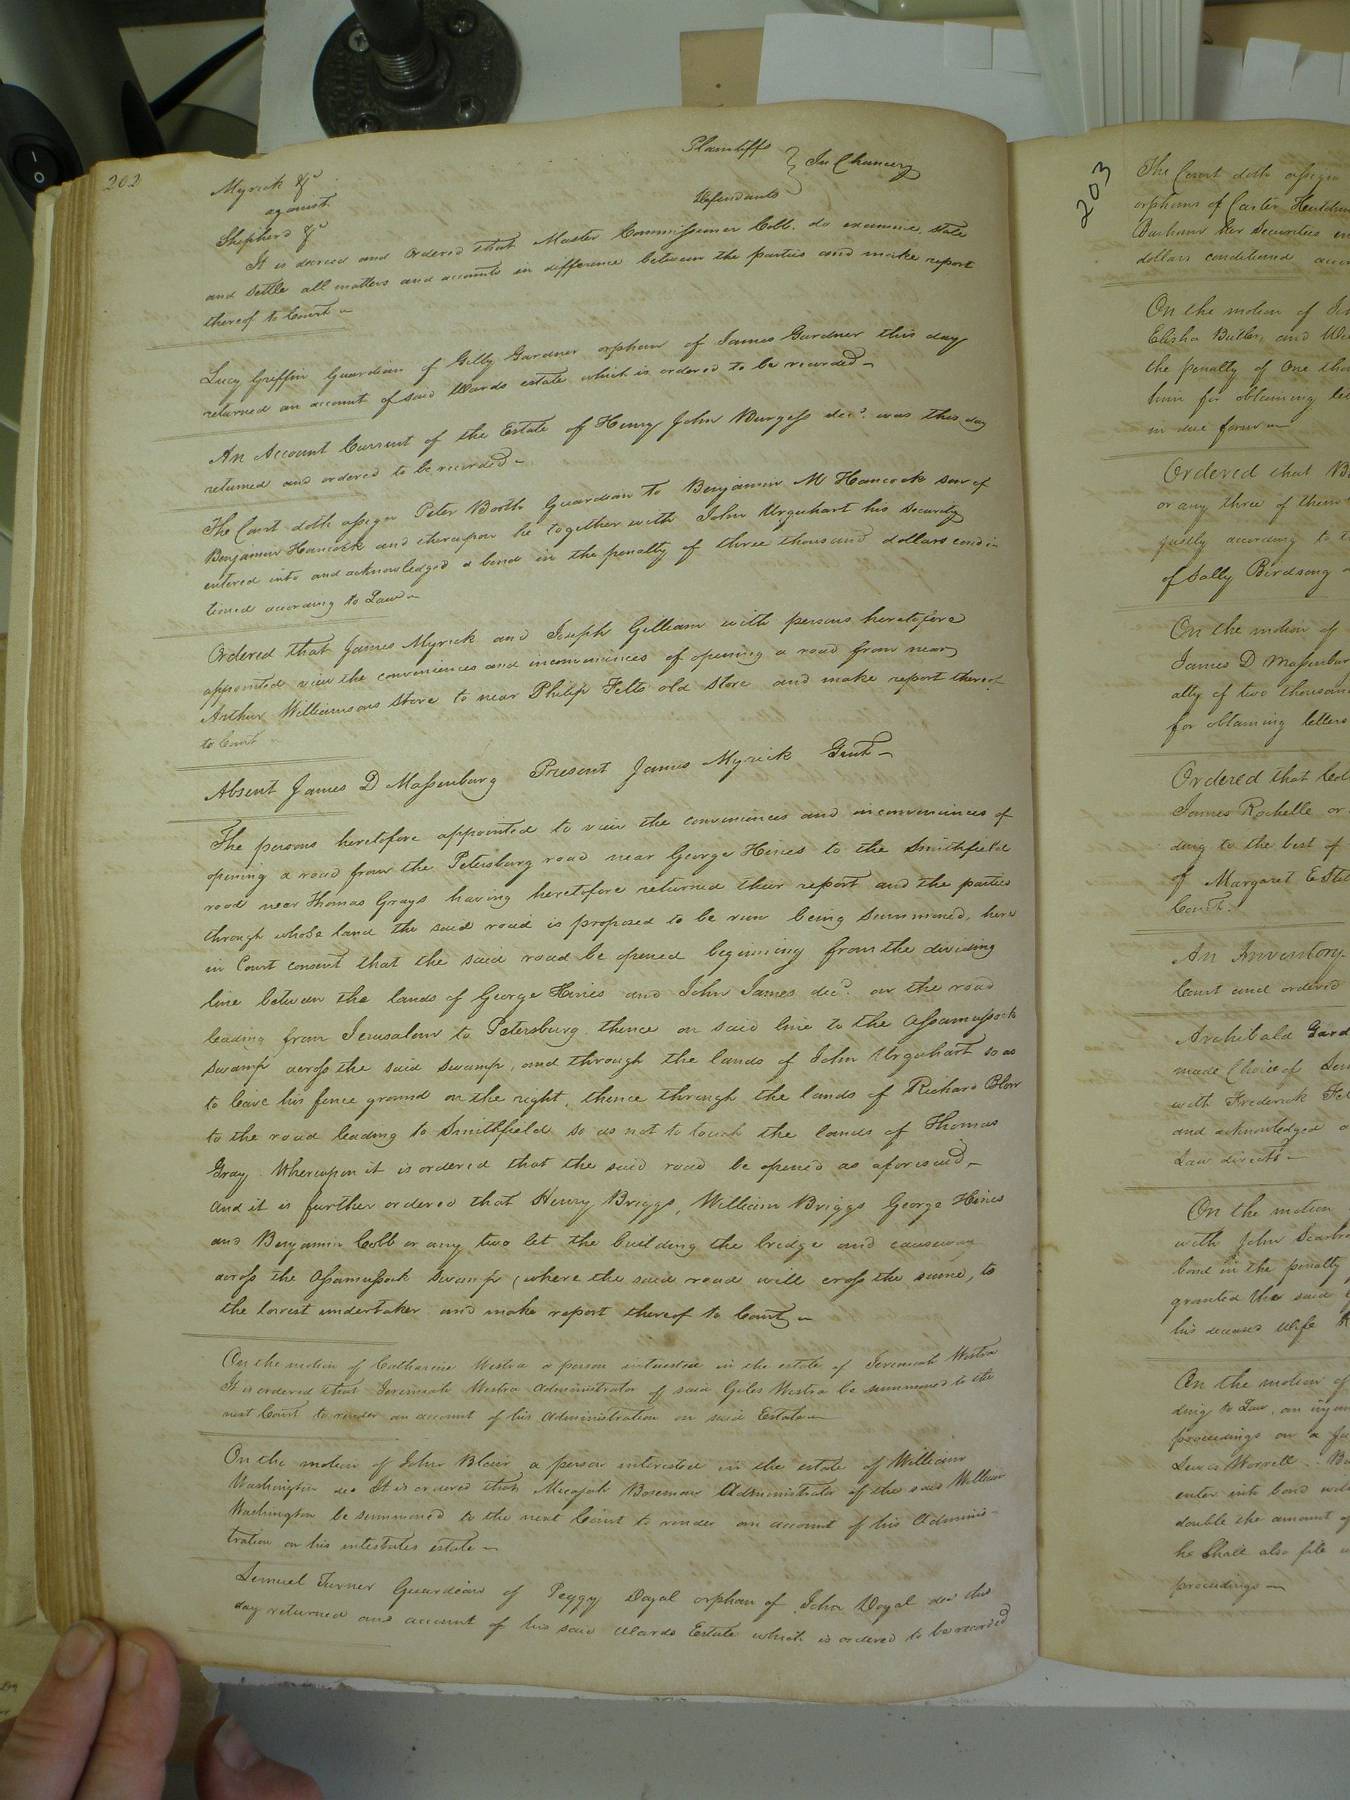 202
Myrick &c Plaintiffs
against } In Chancery
Shepherd &c Defendants
It is decreed and Ordered that Master Commissioner Cobb. do examine, state
and settle all matters and accounts in difference between the parties and make report
thereof to Court
Lucy Griffin Guardian of Gilly Gardner orphan of James Gardner this day
returned an account of said Wards estate which is ordered to be recorded
An Account Current of the Estate of Henry John Burgess decd. was this day
returned and ordered to be recorded
The Court doth assign Peter Booth Guardian to Benjamin M Hancock son of
Benjamin Hancock and thereupon he together with John Urquhart his Security
entered into and acknowledged a bond in the penalty of three thousand dollars condi
tioned according to Law
Ordered that James Myrick and Joseph Gilliam with persons heretofore
appointed view the conveniences and inconveniences of opening a road from near
Arthur Williamsons Store to near Philip Felts old Store and make report thereof
to Court
Absent James D Massenburg Present James Myrick Gent
The persons heretofore appointed to view the conveniences and inconveniences of
opening a road from the Petersburg road near George Hines to the Smithfield
road near Thomas Grays having heretofore returned their report and the parties
through whose land the said road is proposed to be run being summoned, here
in Court consent that the said road be opened beginning from the dividing
line between the lands of George Hines and John James decd. on the road
leading from Jerusalem to Petersburg thence on said line to the Assamussock
swamp across the said swamp, and through the lands of John Urquhart so as
to leave his fence ground on the right, thence through the lands of Richard Blow
to the road leading to Smithfield so as not to touch the lands of Thomas
Gray. Whereupon it is ordered that the said road be opened as aforesaid
and it is further ordered that Henry Briggs, William Briggs George Hines
and Benjamin Cobb or any two let the building the bridge and causeway
across the Assamussock swamp (where the said road will cross the same, to
the lowest undertaker and make report thereof to Court
On the motion of Catharine Westra a person interested in the estate of Jeremiah Westra
It is ordered that Jeremiah Westra Administrator of said Giles Westra be summoned to the
next Court to render an account of his Administration on said Estate
On the motion of John Blair a person interested in the estate of William
Washington dec It is ordered that Micajah Boseman Administrator of the said William
Washington be summoned to the next Court to render an account of his Adminis-
tration on his intestates estate
Lemuel Turner Guardian of Peggy Doyal orphan of John Doyal dec this
day returned and account of his said Wards Estate which is ordered to be recorded
203
The Court doth assign
orphans of Carter
her Securities
dollars conditioned
On the motion of
Elisha Butler, and
the penalty of One
him for obtaining
in due form
Ordered that
or any three of them
justly according to
of Sally Birdsong
On the motion of
James D Massenburg
alty of two thousand
for obtaining letters
Ordered that
James Rochelle or
ding to the best of
of Margaret
Court.
An Inventory
Court and ordered
Archibald
made Choice of
with Frederick
and acknowledged
Law directs
On the motion
with John
bond in the penalty
granted the said
his deceased wife
On the motion of
ding to Law, an
proceedings on a
Lewis Worrell.
enter into bond
double the amount of
he Shall also file
proceedings